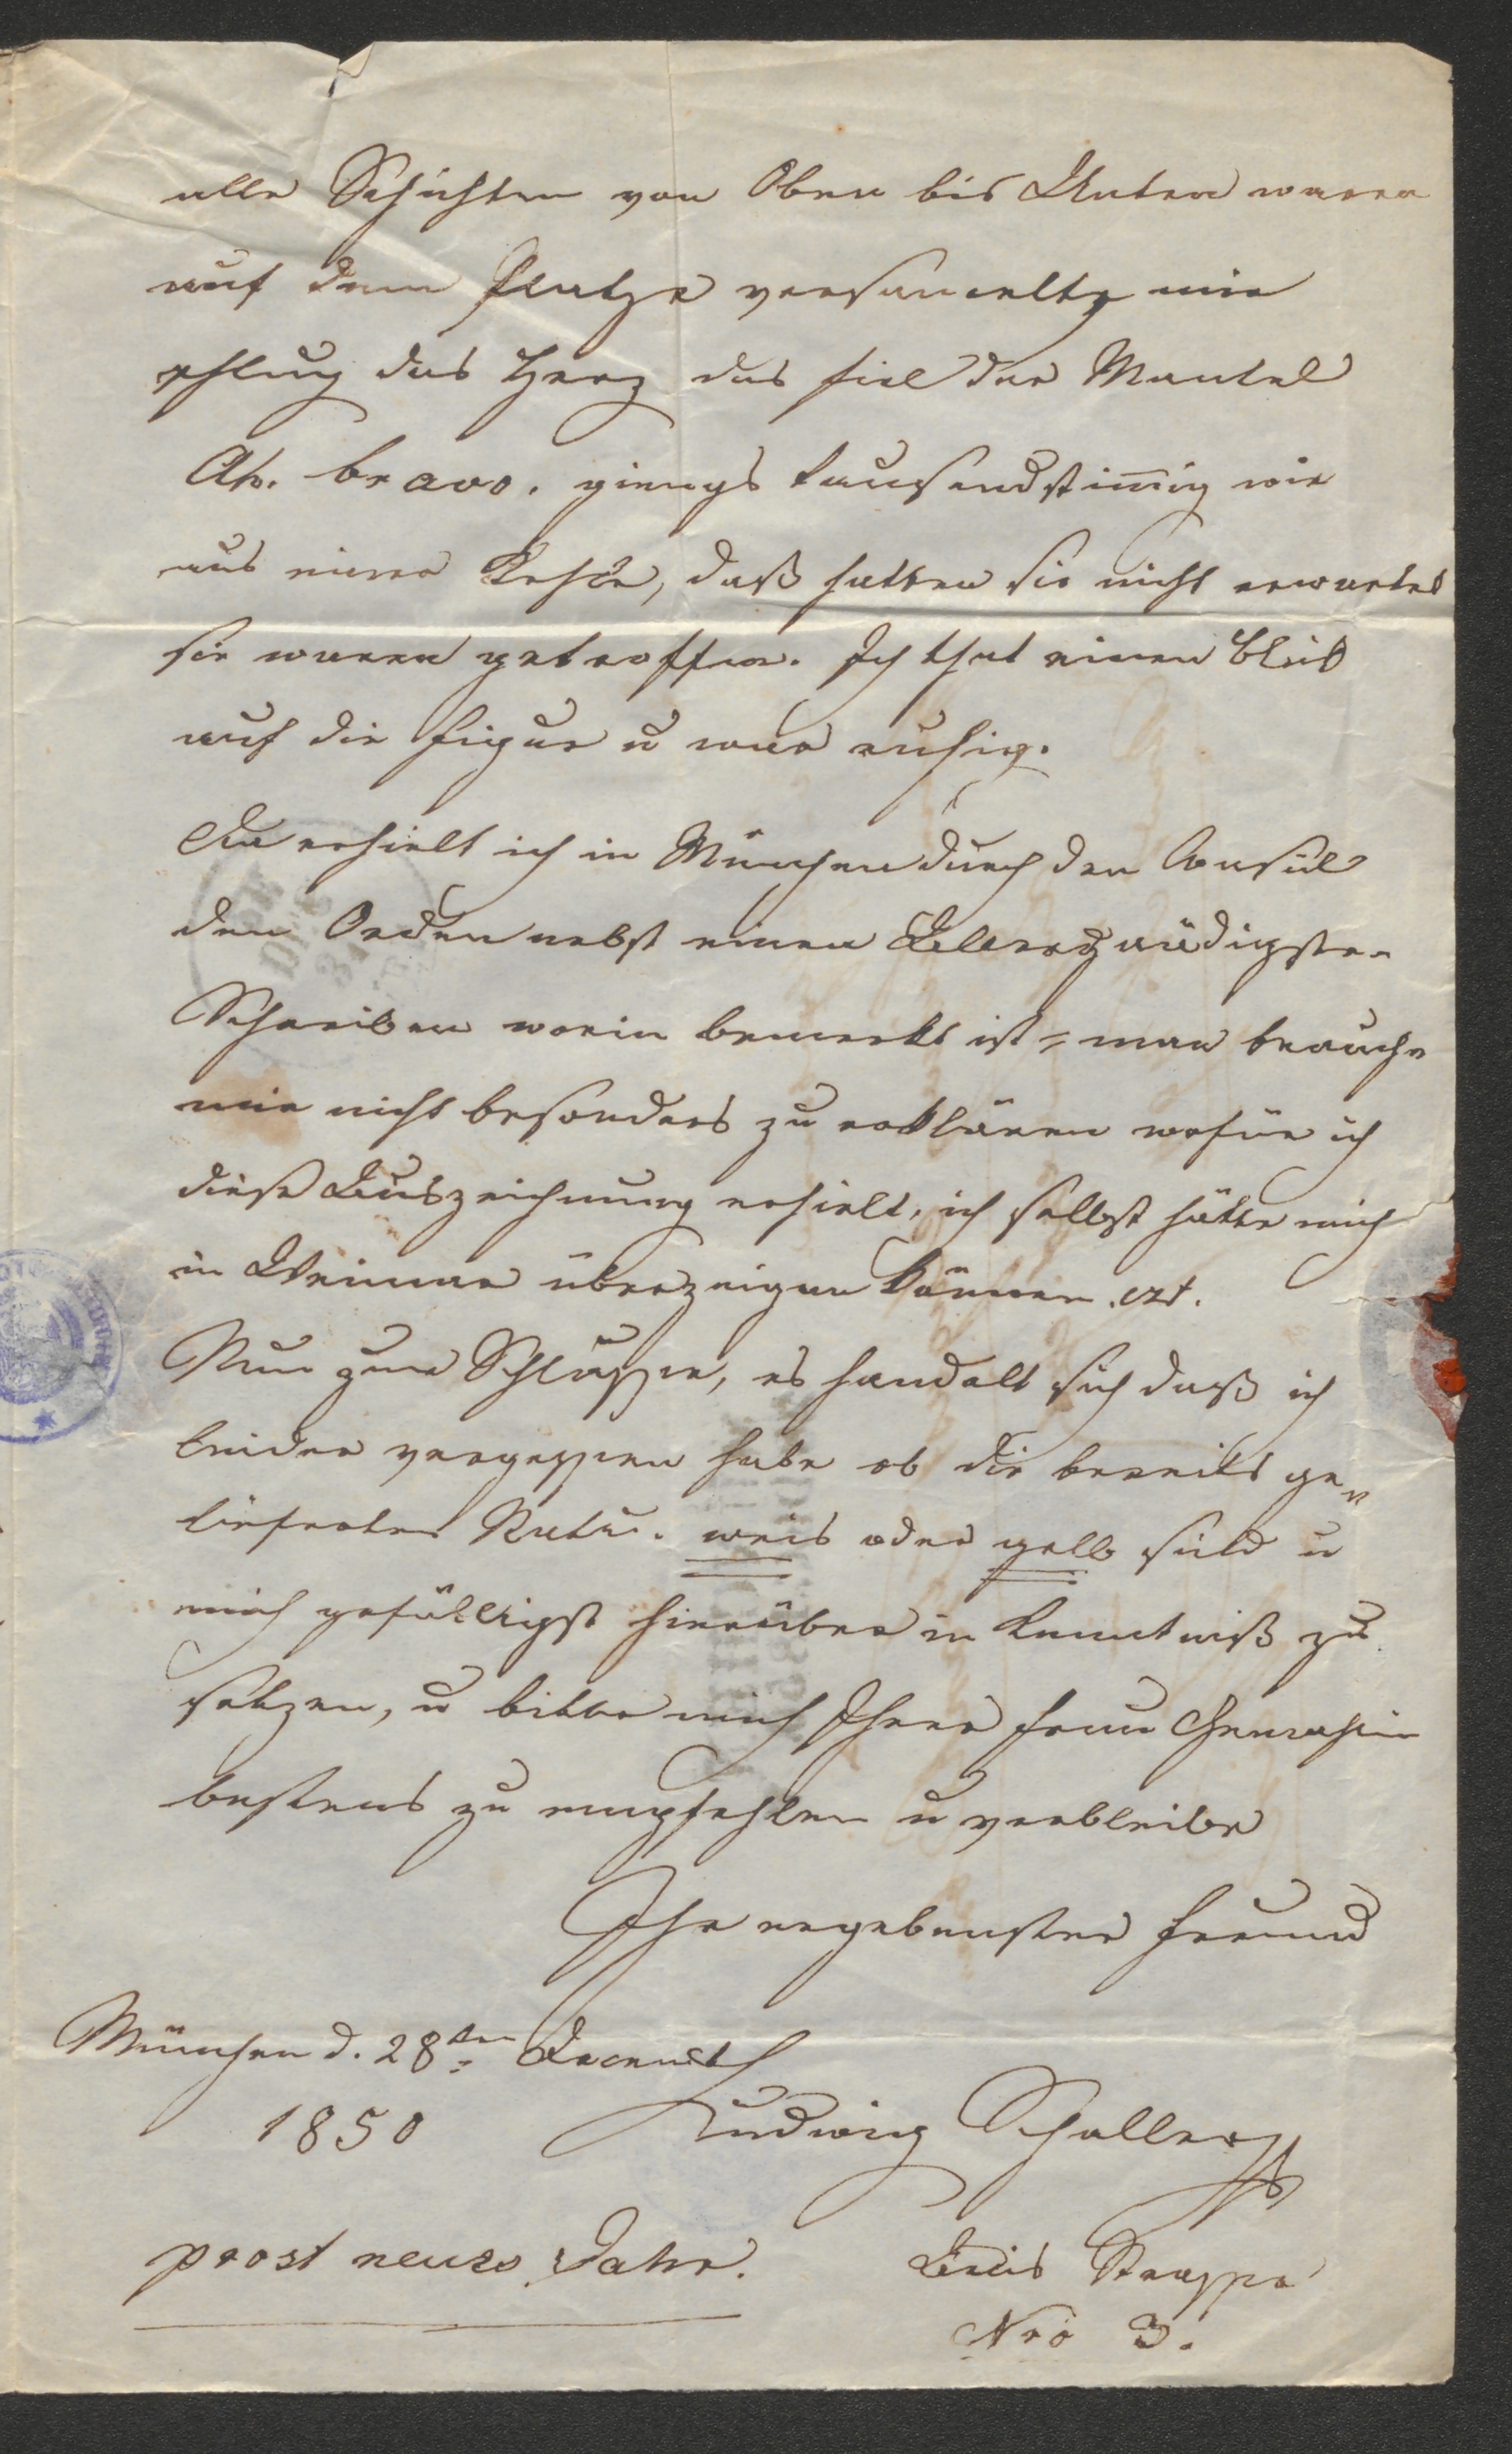 alle Schichten von Oben bis Unten waren
auf dem Platze versammelt, mir
schlug das Herz das fiel der Mantel
Ah. bravo. giengs tausendstim̄ig wie
aus einer Kehle, daß hatten sie nicht erwartet
sie waren getroffen. Ich that einen Blick
auf die Figur u war ruhig.
Da erhielt ich in München durch den Consul
den Orden nebst einen Allergnädigsten
Schreiben worin bemerkt ist = man brauche
mir nicht besonders zu erklären wofür ich
diese Auszeichnung erhielt, ich selbst hätte mich
in Weimar überzeigen können. ect.
Nun zum Schlusse, es handelt sich daß ich
leider vergessen habe ob die bereits ge=
lieferten weis oder gelb sind u
mich gefälligst hierüber in Kenntniß zu
setzen, u bitte mich Ihrer Frau Gemahlin
bestens zu empfehlen u verbleibe
Ihr ergebenster Freund
München d. 28ten Decemb
1850 Ludwig Schaller
prost neues Jahr. Strasse
Nro 3.